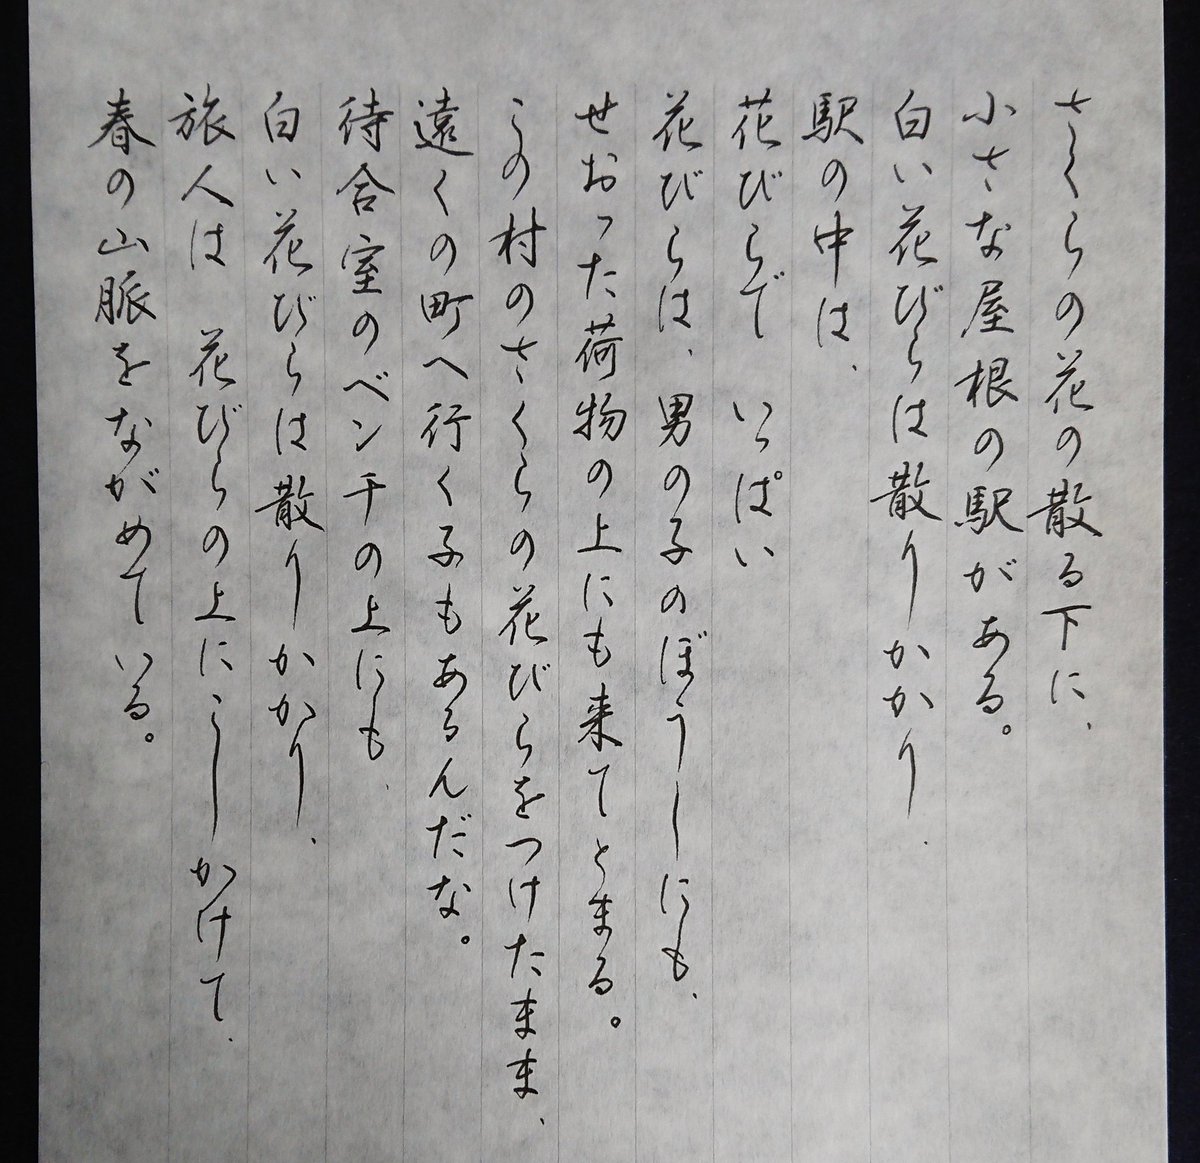 さくらの花の散る下に、
小さな屋根の駅がある。
白い花びらは散りかかり、
駅の中は、
花びらで　いっぱい
花びらは、男の子のぼうしにも、
せおった荷物の上にも来てとまる。
この村のさくらの花びらをつけたまま、
遠くの町へ行く子もあるんだな。
待合室のベンチの上にも、
白い花びらは散りかかり、
旅人は　花びらの上にこしかけて、
春の山脈をながめている。